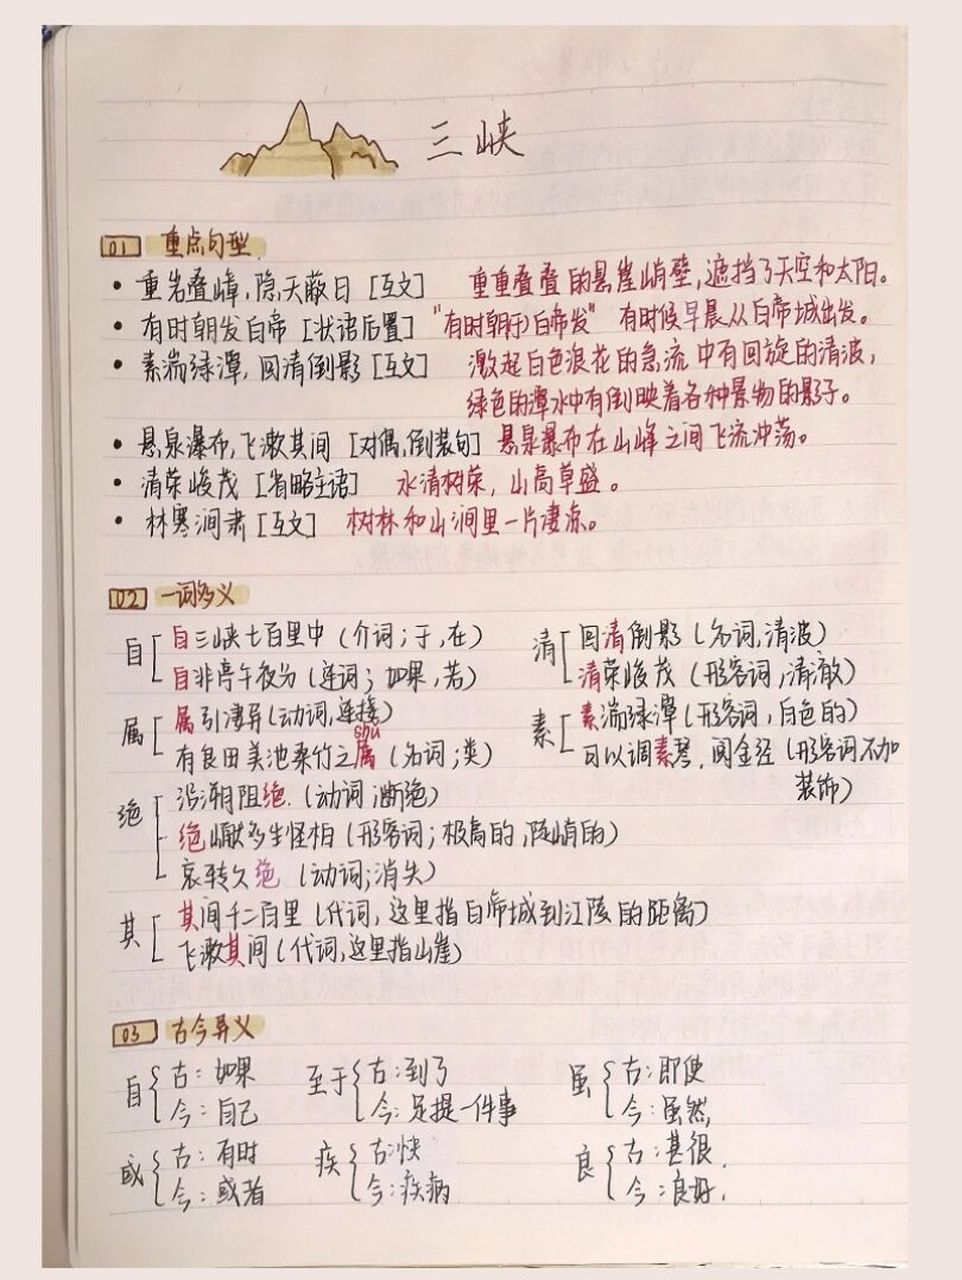 三峡
01 重点句型
• 重岩叠嶂,隐天蔽日 [互文] 重重叠叠的悬崖峭壁,遮挡了天空和太阳。
• 有时朝发白帝 [状语后置] "有时朝(于)白帝发" 有时候早晨从白帝城出发。
• 素湍绿潭,回清倒影 [互文] 激起白色浪花的急流中有回旋的清波,
绿色的潭水中有倒映着各种景物的影子。
• 悬泉瀑布,飞漱其间 [对偶,倒装句] 悬泉瀑布在山峰之间飞流冲荡。
• 清荣峻茂 [省略主语] 水清树荣,山高草盛。
• 林寒涧肃 [互文] 树林和山涧里一片凄凉。
02 一词多义
自 自三峡七百里中 (介词;于,在)
自非亭午夜分 (连词;如果,若)
清 回清倒影 (名词,清波)
清荣峻茂 (形容词,清澈)
属 属引凄异 (动词,连接)
shǔ
有良田美池桑竹之属 (名词;类)
素 素湍绿潭 (形容词,白色的)
可以调素琴,阅金经 (形容词不加
装饰)
绝 沿溯阻绝. (动词;断绝)
绝巘多生怪柏 (形容词;极高的,陡峭的)
哀转久绝 (动词;消失)
其 其间千二百里 (代词,这里指白帝城到江陵的距离)
飞漱其间 (代词,这里指山崖)
03 古今异义
自 古:如果
今:自己
至于 古:到了
今:另提一件事
虽 古:即使
今:虽然
或 古:有时
今:或者
疾 古:快
今:疾病
良 古:甚很.
今:良好.